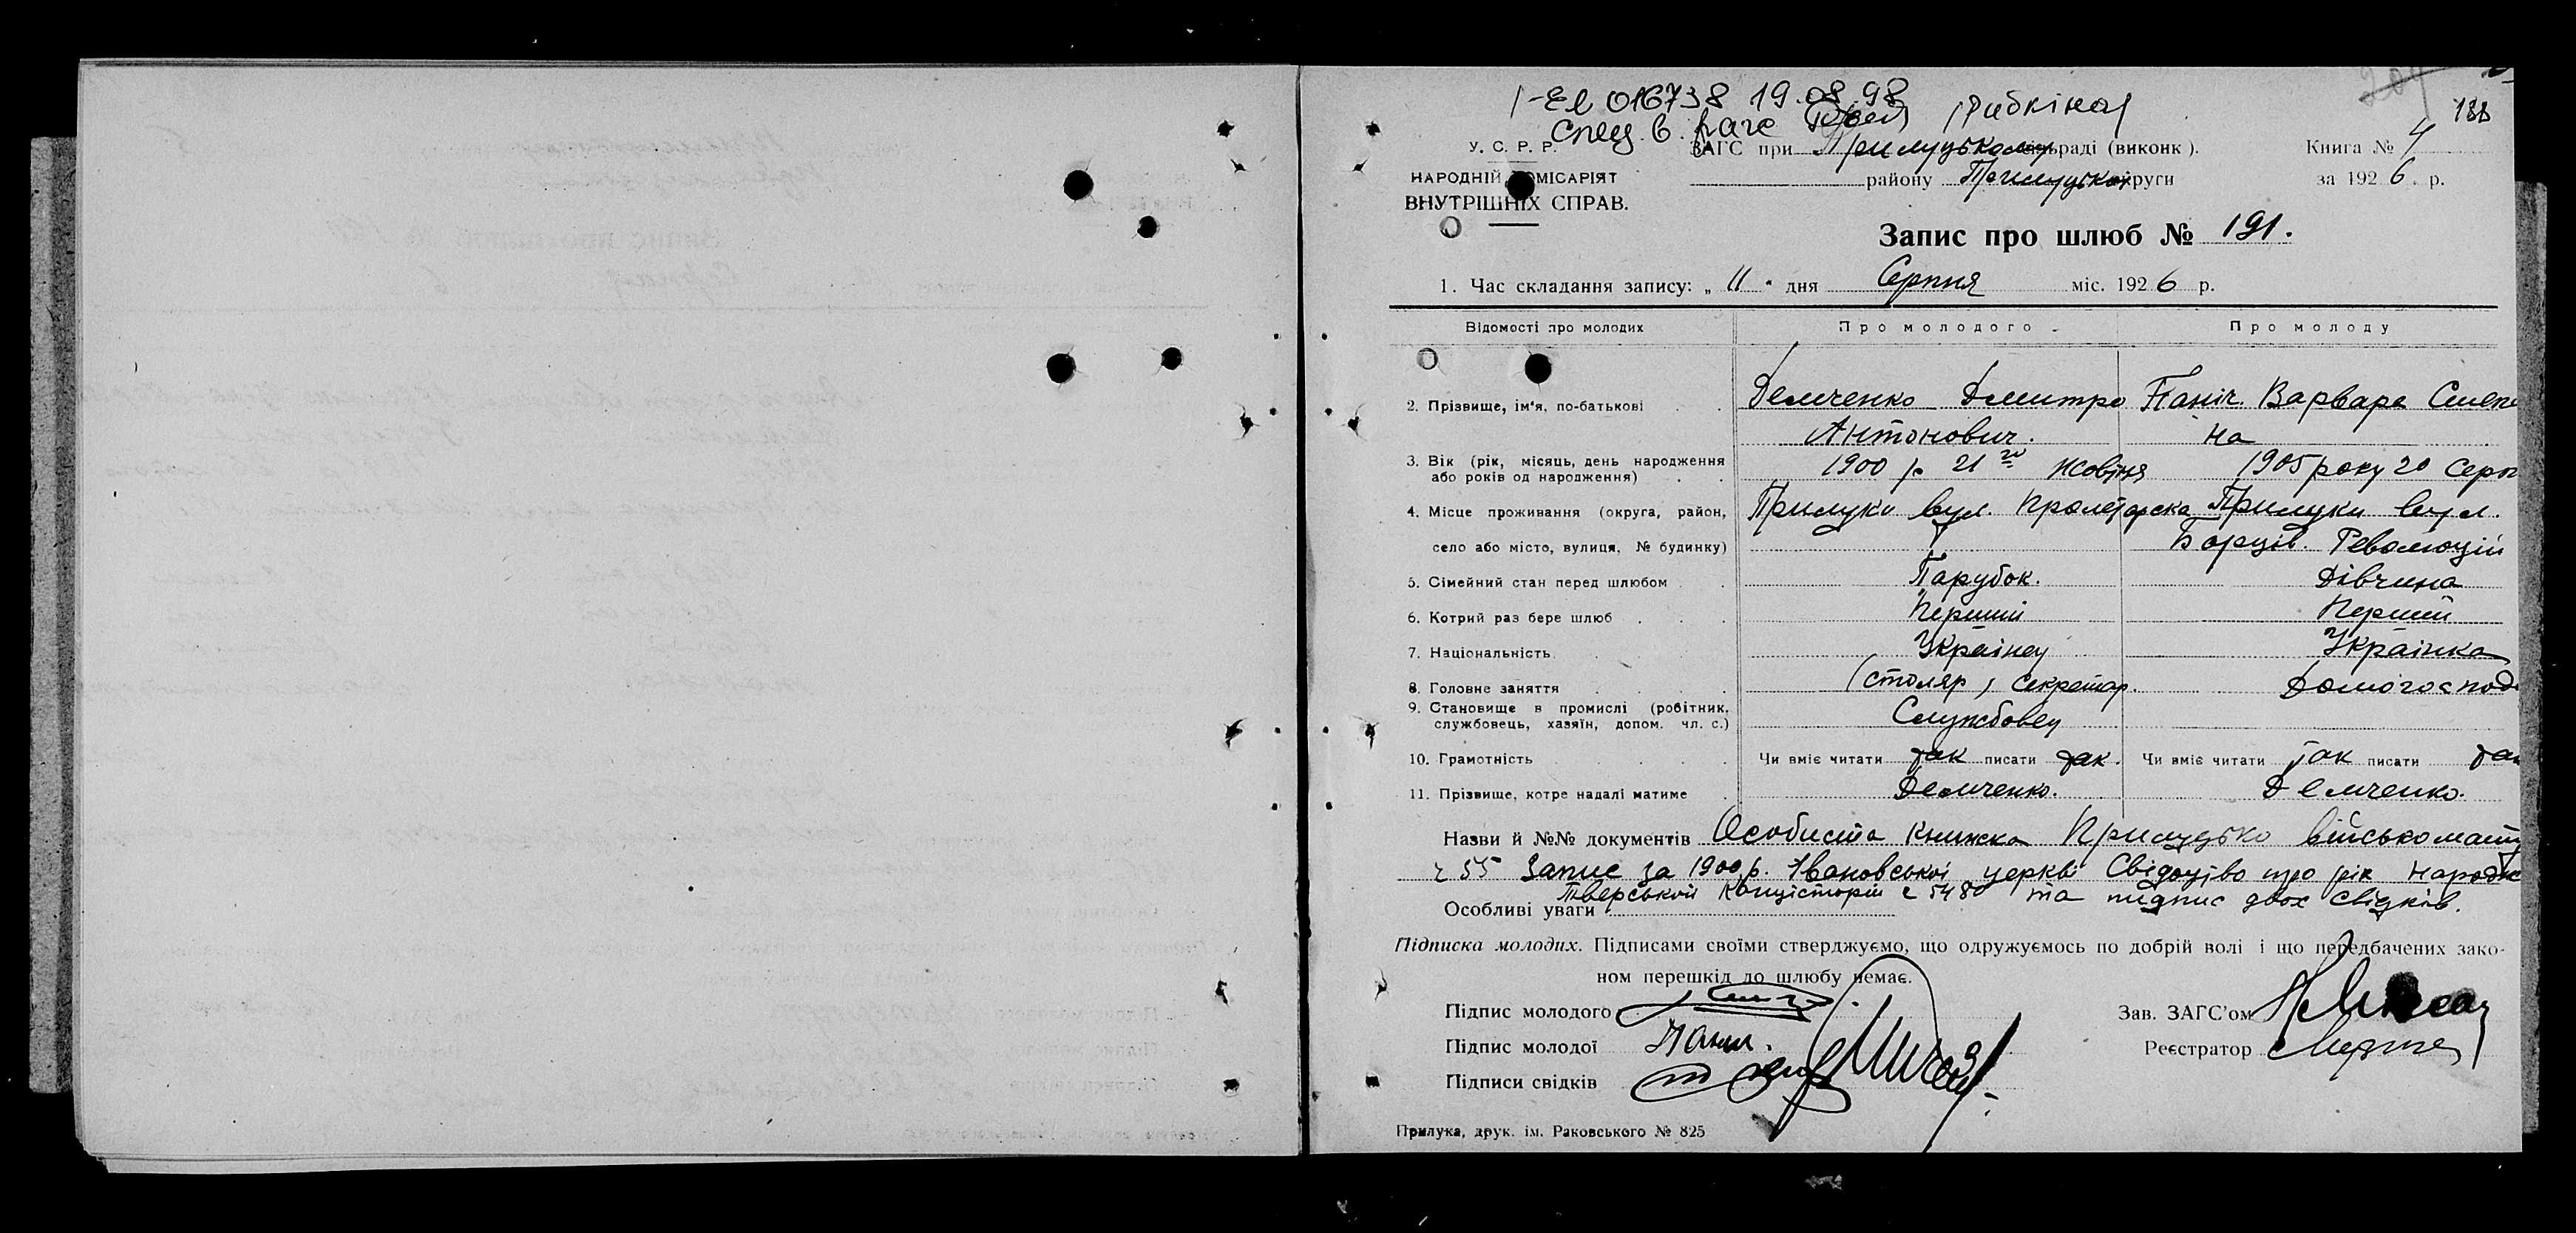 І-ЕЛ 016738 19.08.98
188
У. С. Р. Р.
НАРОДНІЙ КОМІСАРІЯТ
ВНУТРІШНІХ СПРАВ.
ЗАГС при Прилуцькому міськраді (виконк).
району Прилуцької округи
Книга № 4
за 1926 р.
Запис про шлюб № 191.
1. Час складання запису: „11" дня Серпня міс. 1926 р.
Відомості про молодих Про молодого Про молоду
2. Прізвище, ім'я, по-батькові Демченко Дмитро Паніч Варвара Степа
Антонович. на
3. Вік (рік, місяць, день народження 1900 р 21го жовтня 1905 року 20 Серп
або років од народження)
4. Місце проживання (округа, район, Прилуки вул. Пролетарска Прилуки вул.
село або місто, вулиця, № будинку) Борців Революціи
5. Сімейний стан перед шлюбом Парубок. Дівчина
6. Котрий раз бере шлюб Перший Перший
7. Національність Українец Українка
8. Головне заняття (столяр) секретар. Домогоспод
9. Становище в промислі (робітник, Службовец
службовець, хазяїн, допом. чл. с.)
10. Грамотність Чи вміє читати так писати так. Чи вміє читати так писати так
11. Прізвище, котре надалі матиме Демченко. Демченко.
Назви й №№ документів Особиста книжка Прилуцько
ч 55 Запис за 1900 р. Івановської церкві Свідоцтво про рік народж
Тверської Консісторіи ч 5480 та підпис двох свідків.
Особливі уваги
Підписка молодих. Підписами своїми стверджуємо, що одружуємось по добрій волі і що передбачених зако-
ном перешкід до шлюбу немає.
Підпис молодого
Підпис молодої Панич.
Підписи свідків
Зав. ЗАГС'ом
Реєстратор
Прилука, друк. ім. Раковського № 825